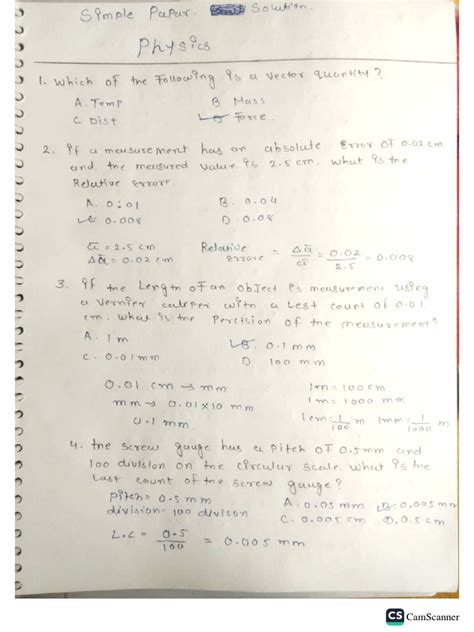 Simple Papar. Solution.
Physics
1. which of the Following is a vector quantity?
A. Temp B. Mass
C. Dist D Force.
2. if a measurement has an absolute Error of 0.02 cm
and the measured value is 2.5 cm. what is the
Relative errore.
A. 0.01 B. 0.04
C 0.008 D. 0.08
a̅ = 2.5 cm Relative errore = Δa̅/a̅ = 0.02/2.5 = 0.008
Δa̅ = 0.02 cm
3. if the Length of an object is measurement using
a vernier caliper with a Lest count of 0.01
cm. what is the Percision of the measurement?
A. 1m B. 0.1 mm
C. 0.01mm D. 100 mm
0.01 cm → mm 1m = 100cm
mm → 0.01×10 mm 1m = 1000 mm
0.1 mm. 1cm = 1/100 m 1mm = 1/1000 m
4. the screw gauge has a pitch of 0.5mm and
100 division on the circular scale. what is the
Last count of the screw gauge?
pitch = 0.5 mm A. 0.05 mm B. 0.005 mm
division - 100 divison C. 0.005 cm D. 0.5 cm
L.C = 0.5/100 = 0.005 mm
CS CamScanner